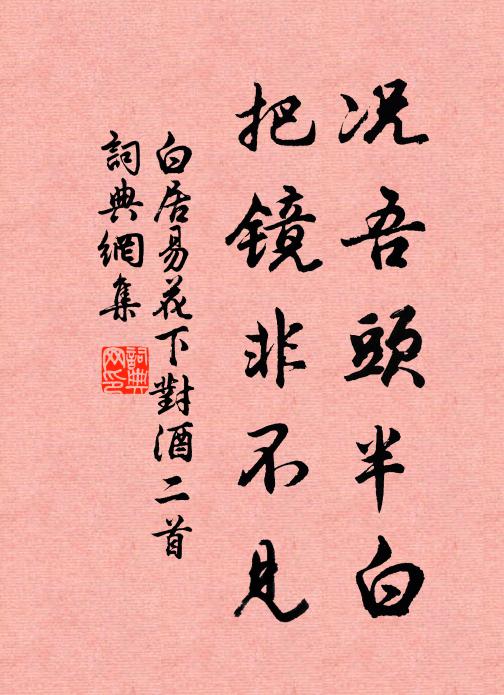 况吾頭半白
把镜非不見
白居易花下對酒二首
詞典網集
詞典
网印